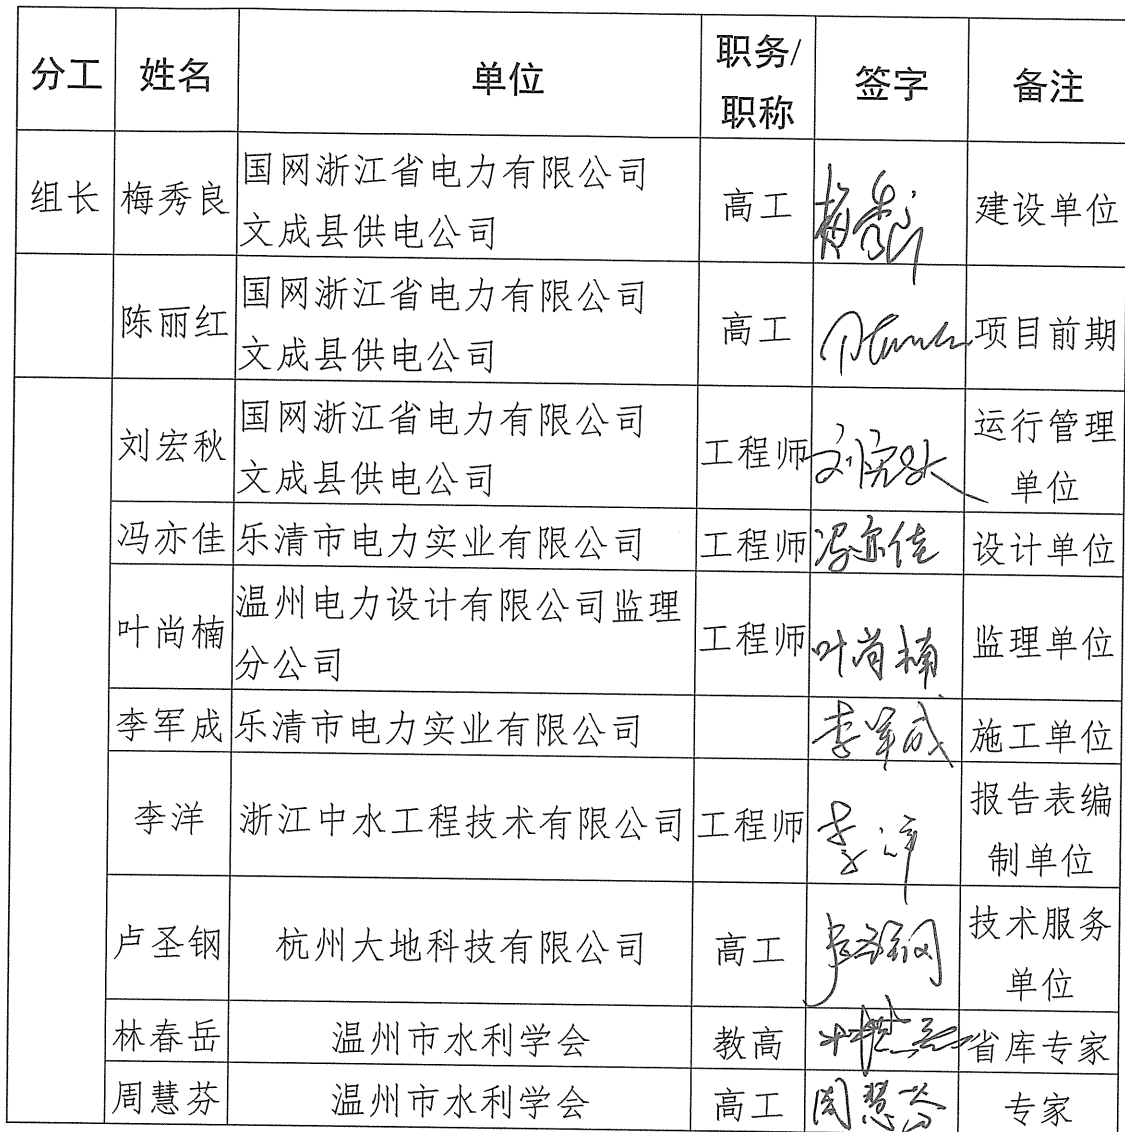 分工 姓名 单位 职务/职称 签字 备注
组长 梅秀良 国网浙江省电力有限公司文成县供电公司 高工 梅秀良 建设单位
陈丽红 国网浙江省电力有限公司文成县供电公司 高工 项目前期
刘宏秋 国网浙江省电力有限公司文成县供电公司 工程师 刘宏秋 运行管理单位
冯亦佳 乐清市电力实业有限公司 工程师 冯亦佳 设计单位
叶尚楠 温州电力设计有限公司监理分公司 工程师 叶尚楠 监理单位
李军成 乐清市电力实业有限公司 李军成 施工单位
李洋 浙江中水工程技术有限公司 工程师 李洋 报告表编制单位
卢圣钢 杭州大地科技有限公司 高工 卢圣钢 技术服务单位
林春岳 温州市水利学会 教高 省库专家
周慧芬 温州市水利学会 高工 周慧芬 专家